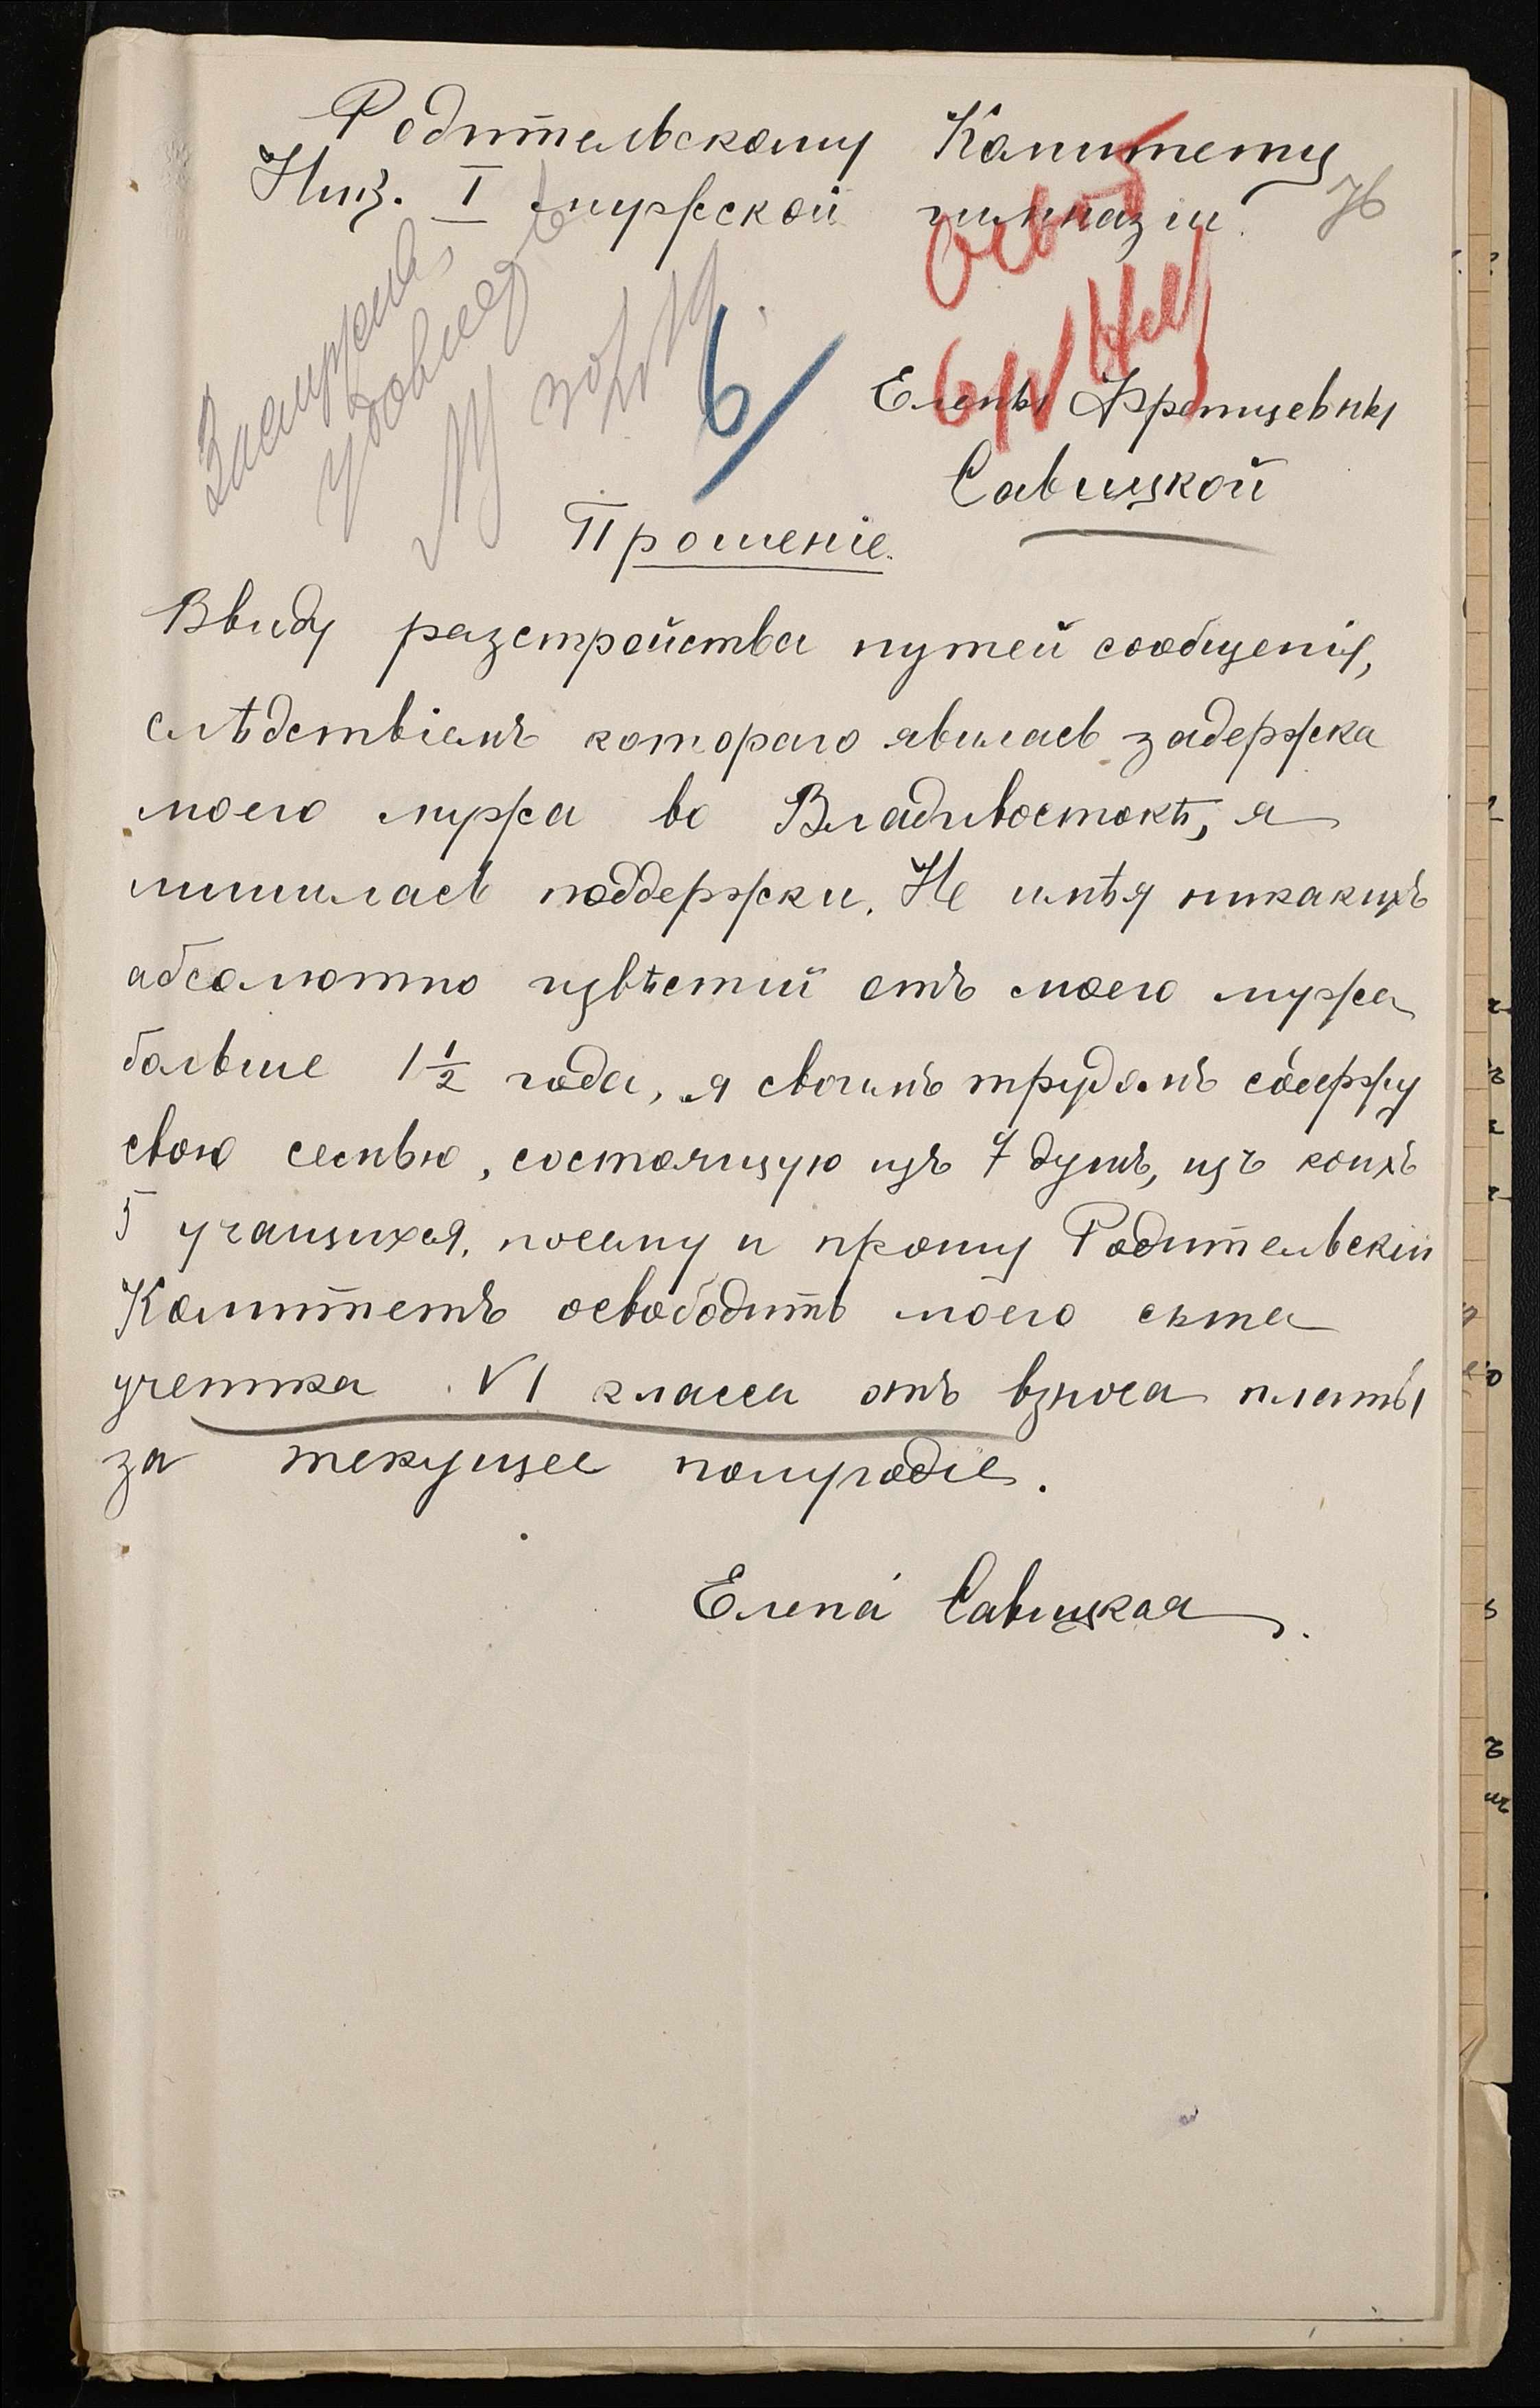 Родительскому Комитету
Ниж. I мужской гимназіи.
76
Заслуживаетъ
6/
Елены Францевны
Савицкой
Прошеніе.
Ввиду разстройства путей сообщенія,
слѣдствіемъ котораго явилась задержка
моего мужа во Владивостокѣ, я
лишилась поддержки. Не имѣя никакихъ
абсолютно извѣстий отъ моего мужа
больше 1 1/2 года, я своимъ трудомъ содержу
свою семью, состоящую изъ 7 душъ, изъ коихъ
5 учащихся, посему и прошу Родительскій
Комитетъ освободить моего сына
ученика VI класса отъ взноса платы
за текущее полугодіе.
Елена Савицкая.